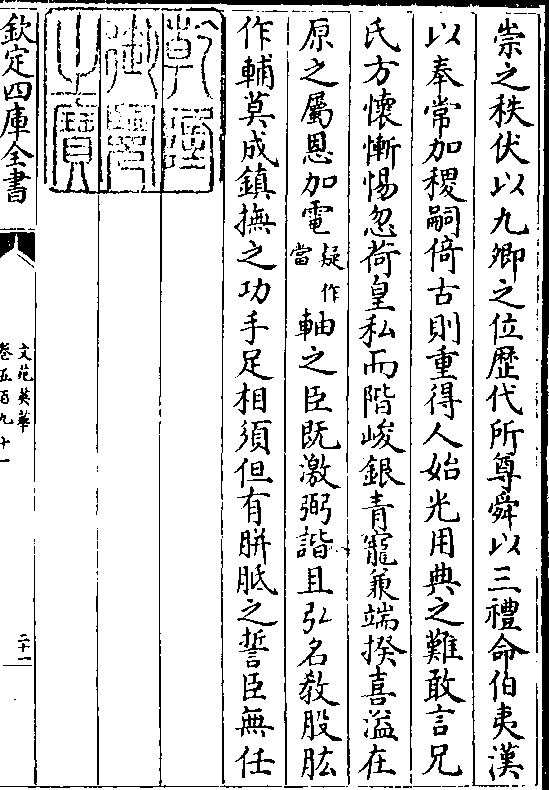 崇之秩伏以九卿之位歴代所尊舜以三禮命伯夷漢
以奉常加稷嗣倚古則重得人始光用典之難敢言兄
氏方懷慚惕忽荷皇私而階峻銀青寵兼端揆喜溢在
原之屬恩加電疑作當軸之臣既激弼諧且引名教股肱
作輔莫成鎮撫之功手足相須但有胼胝之誓臣無任
乾隆御覽之寶
欽定四庫全書
文苑英華
卷五百九十一
二十一